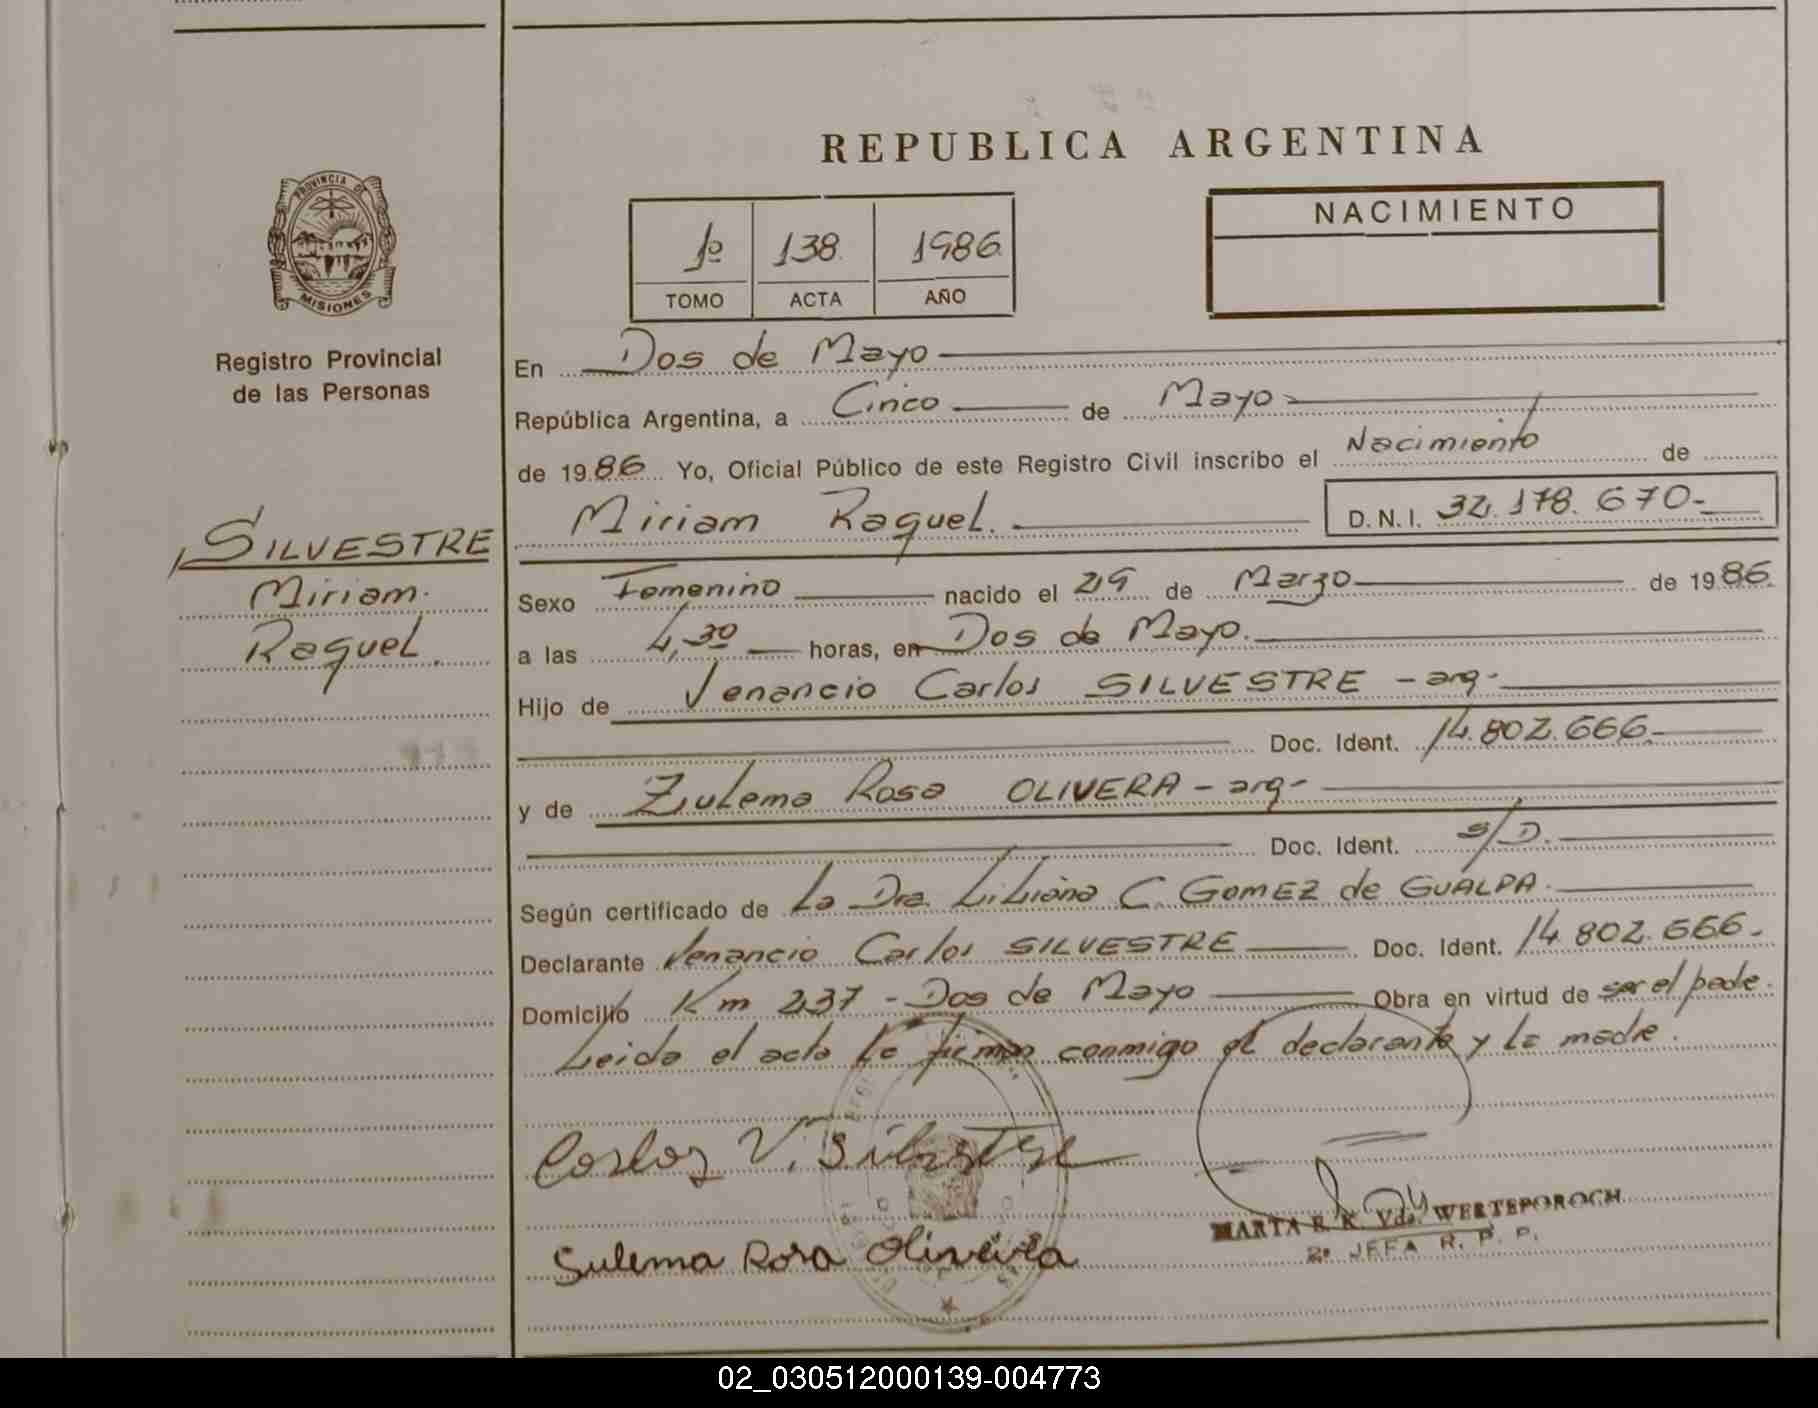 REPUBLICA ARGENTINA
PROVINCIA DE
MISIONES
Registro Provincial
de las Personas
1º 138. 1986.
TOMO ACTA AÑO
NACIMIENTO
En Dos de Mayo
República Argentina, a Cinco de Mayo
de 1986. Yo, Oficial Público de este Registro Civil inscribo el Nacimiento de
Miriam Raquel. D.N.I. 32.178.670-
SILVESTRE
Miriam.
Raquel.
Sexo Femenino nacido el 29 de Marzo de 1986.
a las 4,30 horas, en Dos de Mayo.
Hijo de Venancio Carlos SILVESTRE - arg.-
Doc. Ident. 14.802.666.
y de Zulema Rosa OLIVERA - arg-
Doc. Ident. S/D.
Según certificado de La Dra. Liliana C. GOMEZ de GUALPA.
Declarante Venancio Carlos SILVESTRE Doc. Ident. 14.802.666.
Domicilio Km 237 - Dos de Mayo Obra en virtud de ser el padre.
Leida el acta la firman conmigo el declarante y la madre.
Carlos V. Silvestre
MARTA E. K. Vda. WERTEPOROCH
2º JEFA R. P. P.
Sulema Rosa Oliveira
02_030512000139-004773